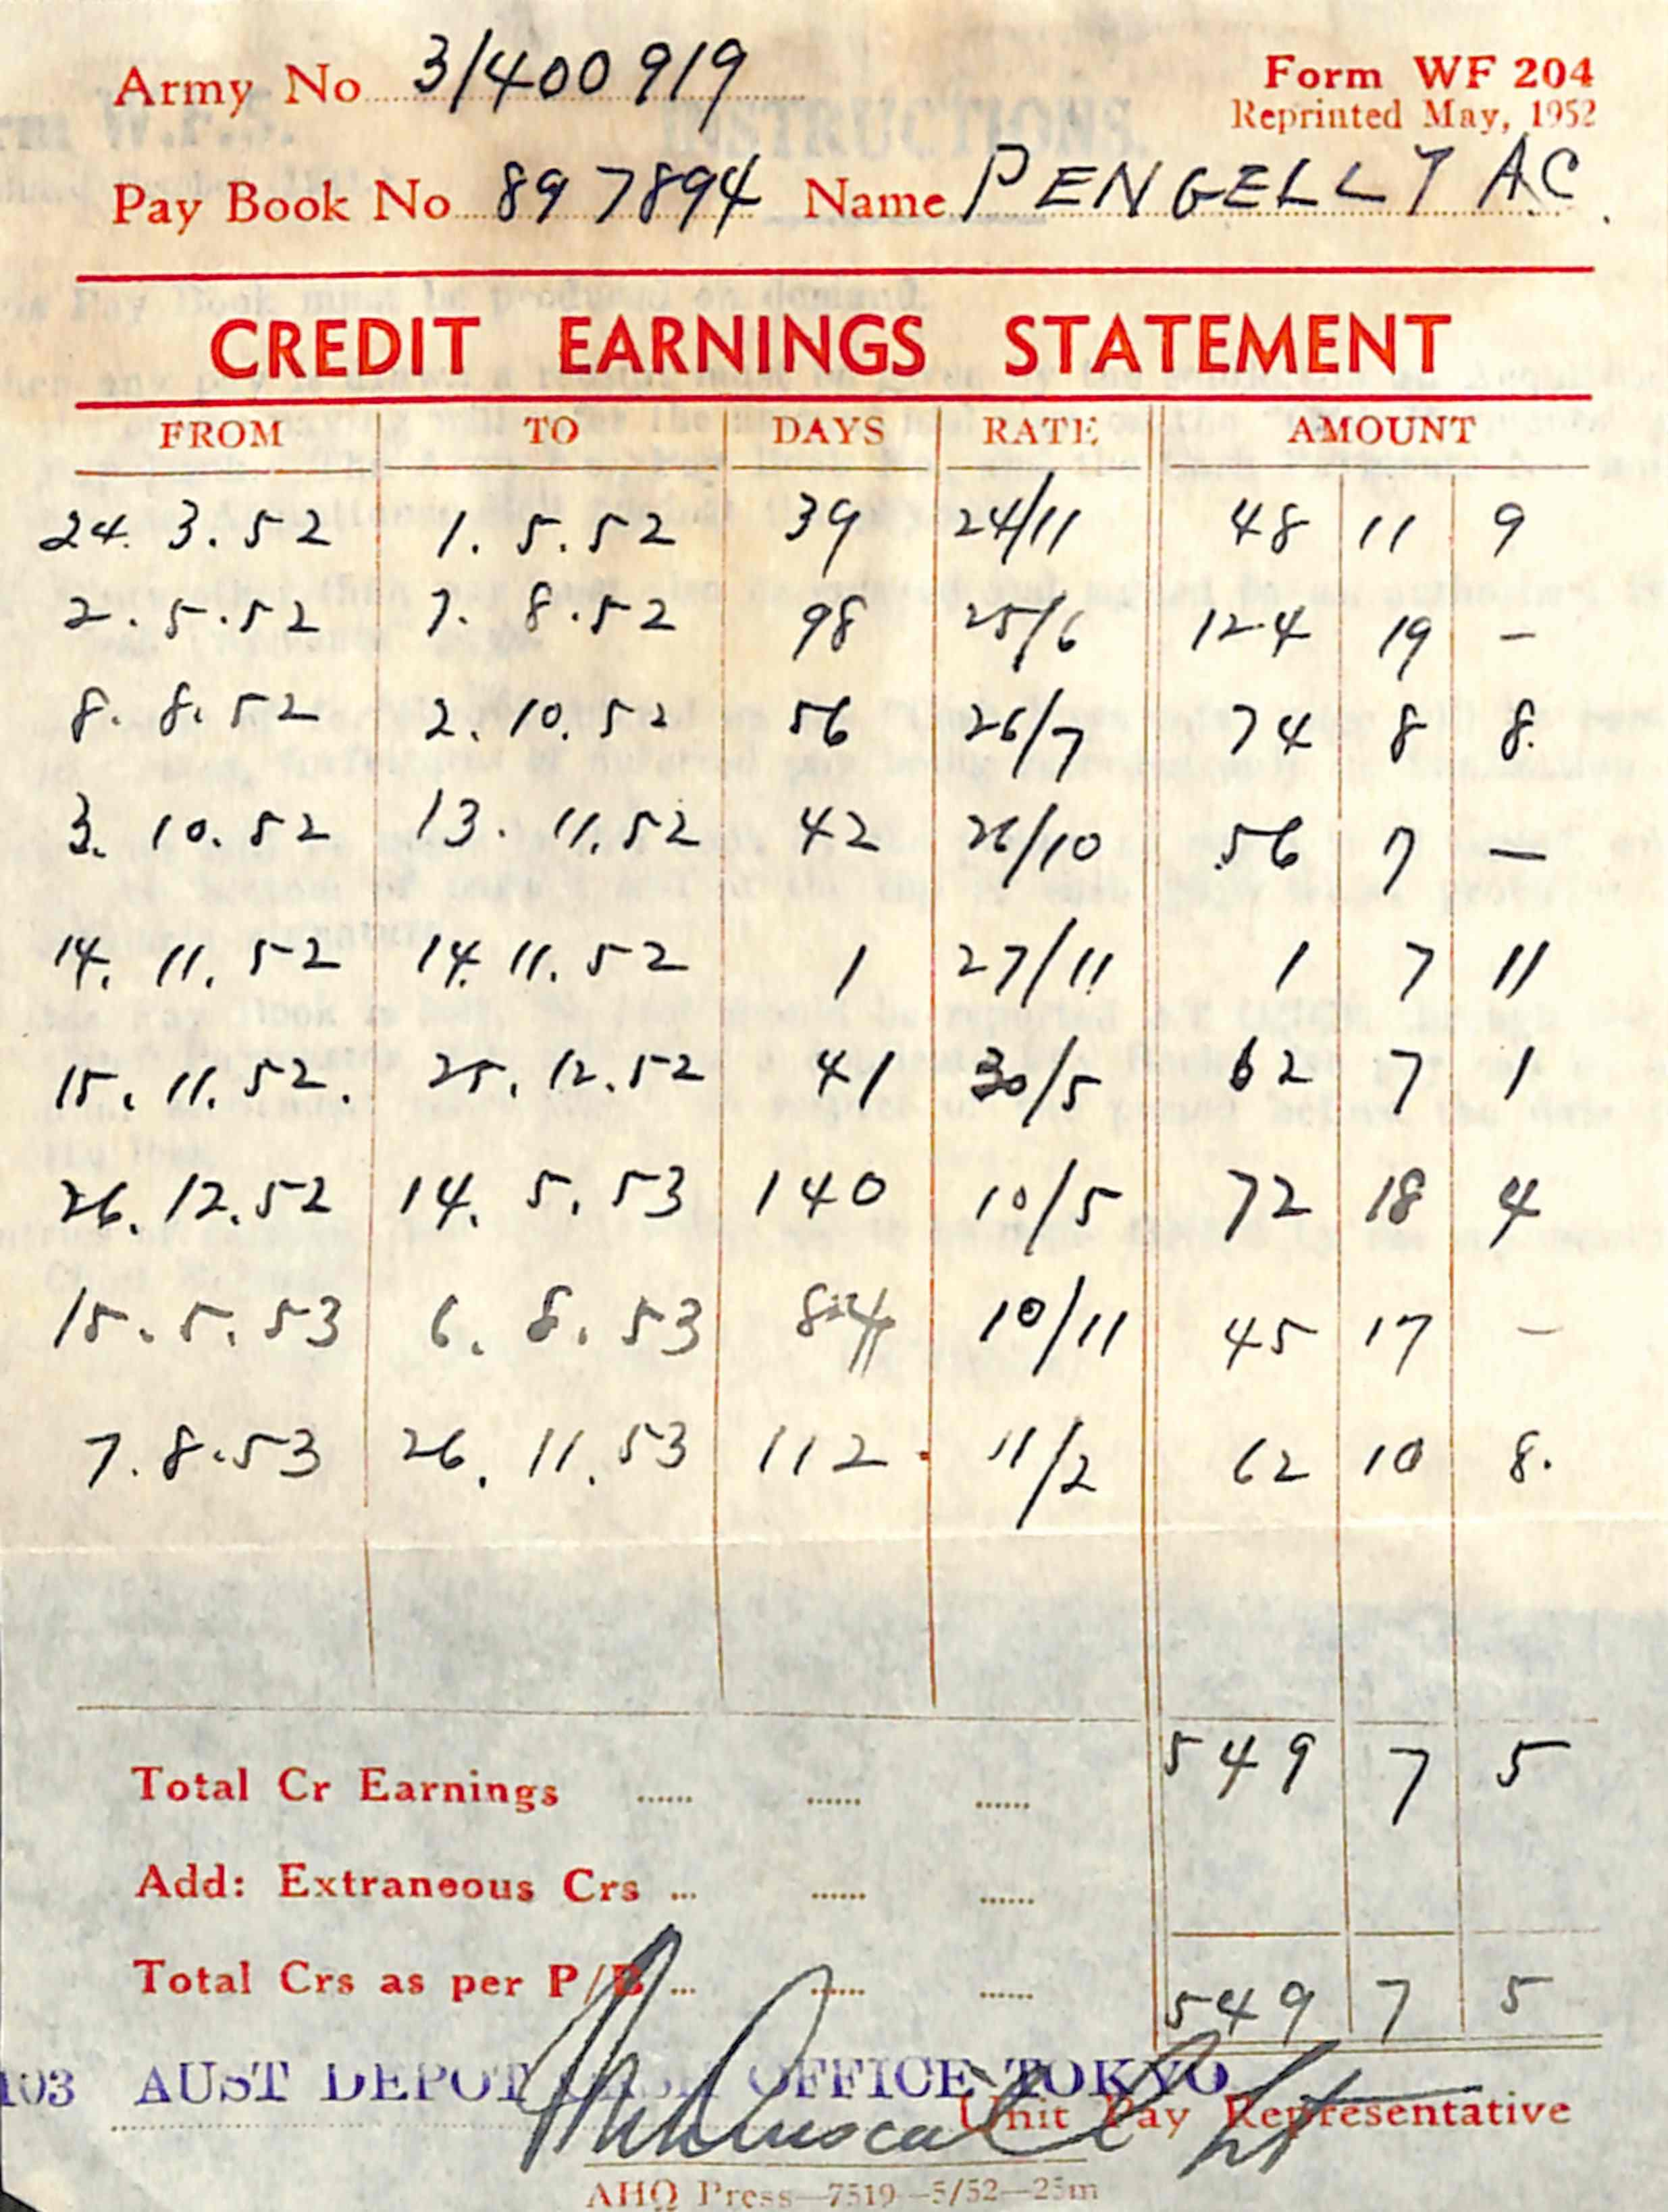 Army No 3/400919 Form WF 204
Reprinted May, 1952
Pay Book No 897894 Name PENGELLY AC.
CREDIT EARNINGS STATEMENT
FROM TO DAYS RATE AMOUNT
24. 3. 52 1. 5. 52 39 24/11 48 11 9
2. 5. 52 7. 8. 52 98 25/6 124 19 -
8. 8. 52 2. 10. 52 56 26/7 74 8 8.
3. 10. 52 13. 11. 52 42 26/10 56 7 -
14. 11. 52 14. 11. 52 1 27/11 1 7 11
15. 11. 52. 25. 12. 52 41 30/5 62 7 1
26. 12. 52 14. 5. 53 140 10/5 72 18 4
15. 5. 53 6. 8. 53 84 10/11 45 17 -
7. 8. 53 26. 11. 53 112 11/2 62 10 8.
Total Cr Earnings ...... ...... ...... 549 7 5
Add: Extraneous Crs ... ...... ......
Total Crs as per P/B ... ...... ...... 549 7 5
103 AUST DEPOT CASH OFFICE TOKYO
Lt
Unit Pay Representative
AHQ Press—7519—5/52—25m